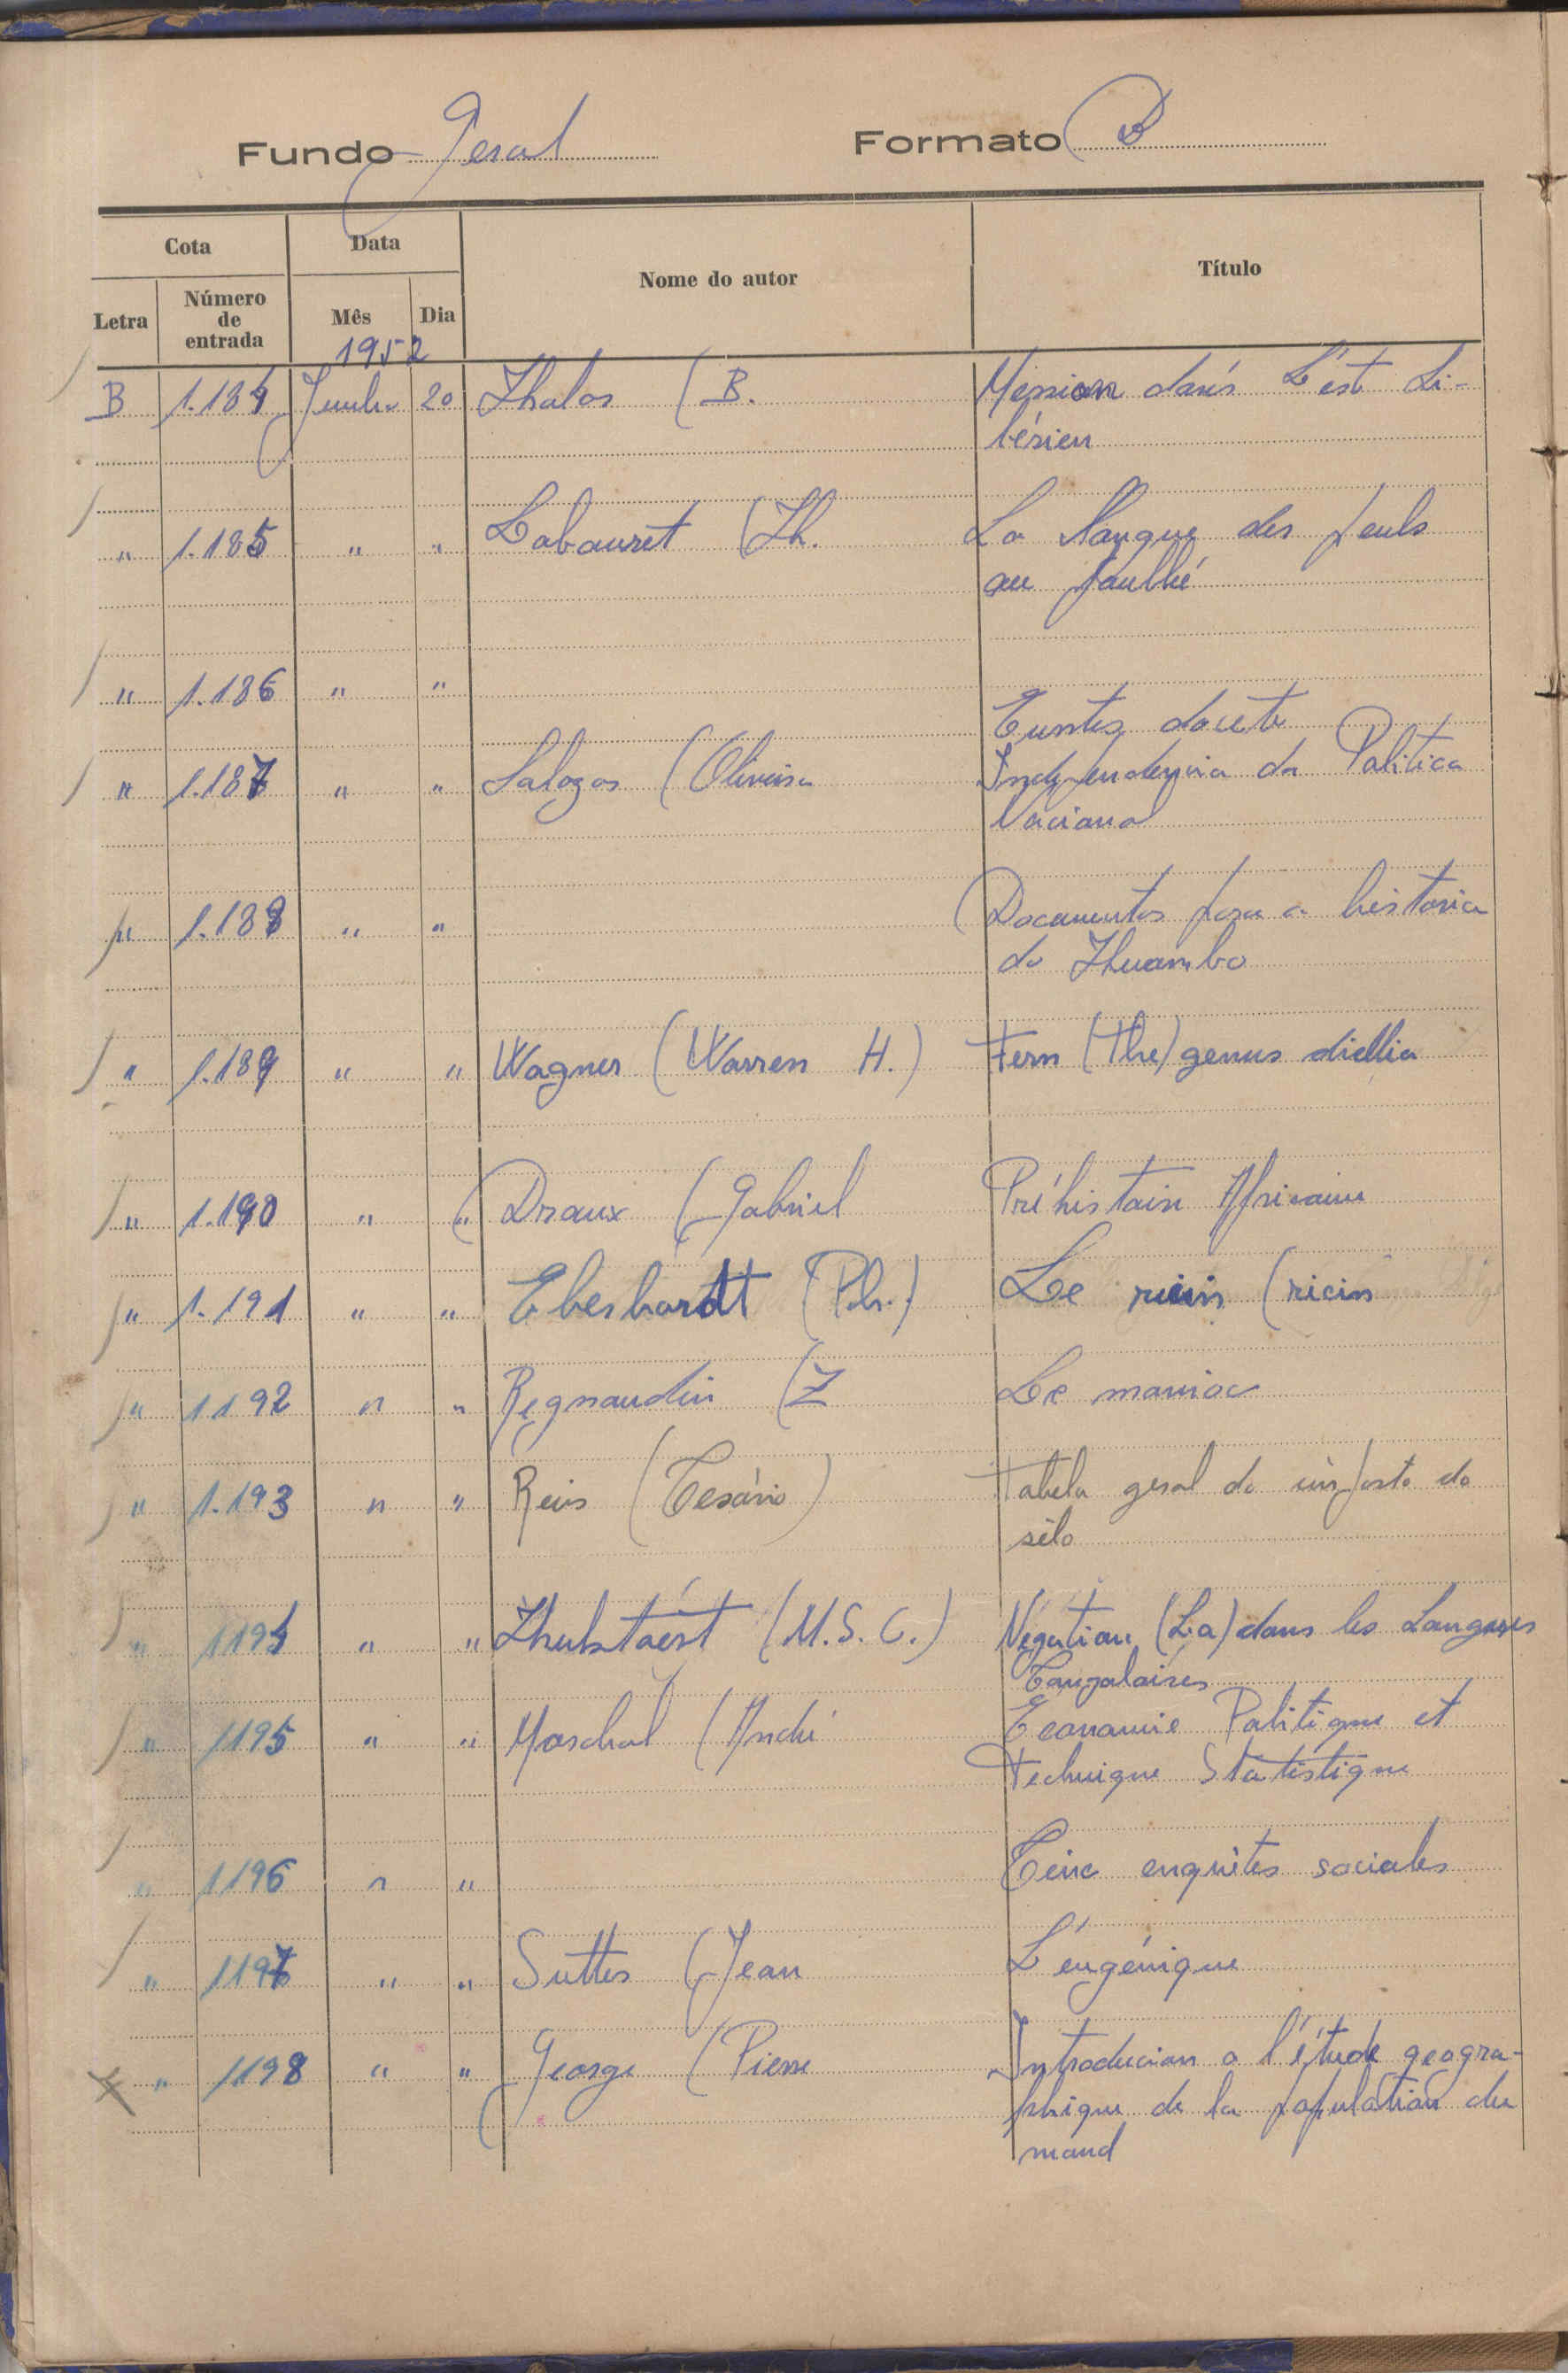 Fundo Geral Formato B
Cota Data Nome do autor Título
Letra Número de entrada Mês Dia
1952
B 1.184 Junho 20 Thalos (B. Mission dans L'est Li-
bérien
" 1.185 " " Labouret (Th. La Langue des peuls
ou foulbé
" 1.186 " "
Euntes docete
" 1.187 " " Salazar (Oliveira Independencia da Politica
Nacional
" 1.188 " " Documentos para a historia
do Huambo
" 1.189 " " Wagner (Warren H.) Fern (the) genus diellia
" 1.190 " " Draux (Gabriel Préhistoire Africaine
" 1.191 " " Eberhardt (Ph.) Le ricin (ricin
" 1192 " " Regnaudin (Z Le manioc
" 1.193 " " Reis (Cesário) Tabela geral do imposto do
sêlo
" 1194 " " (M.S.C.) Négation (La) dans les Langues
Congolaises
" 1195 " " Marchal (André Economie Politique et
technique Statistique
" 1196 " " Cinc enquêtes sociales
" 1197 " " Sutter (Jean L'eugénique
" 1198 " " George (Pierre Introducion a l'étude geogra-
phique de la population du
mond